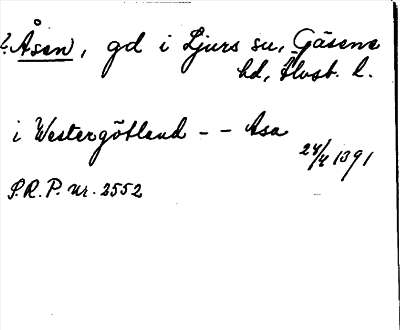 ? Åsen, gd i Ljurs sn, Gäsene
hd, Älvsb. l.
i Westergötland - - Asa
24/4 1391
S.R.P. nr. 2552